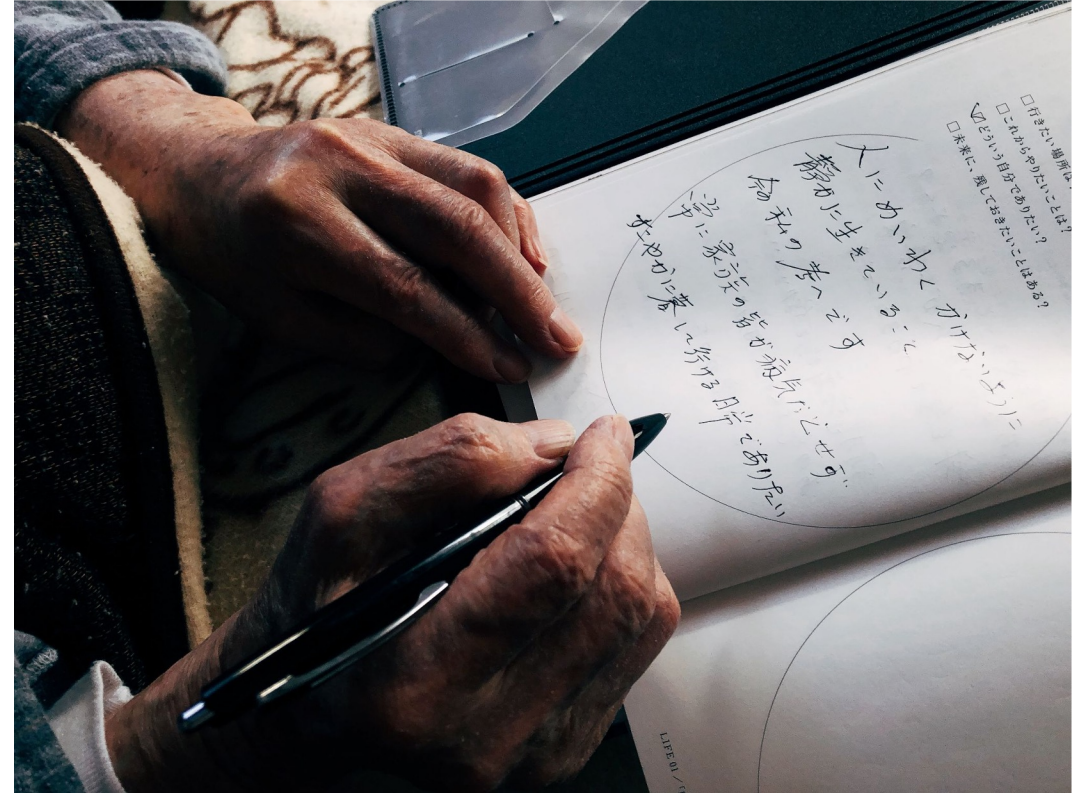 □行きたい場所は?
□これからやりたいことは?
☑どういう自分でありたい?
□未来に、残しておきたいことはある?
人にめいわく かけないように
静かに生きていること
今 私の考へです
常に家族の皆が病気などせず
すこやかに暮して行ける日常でありたい
LIFE 01 /